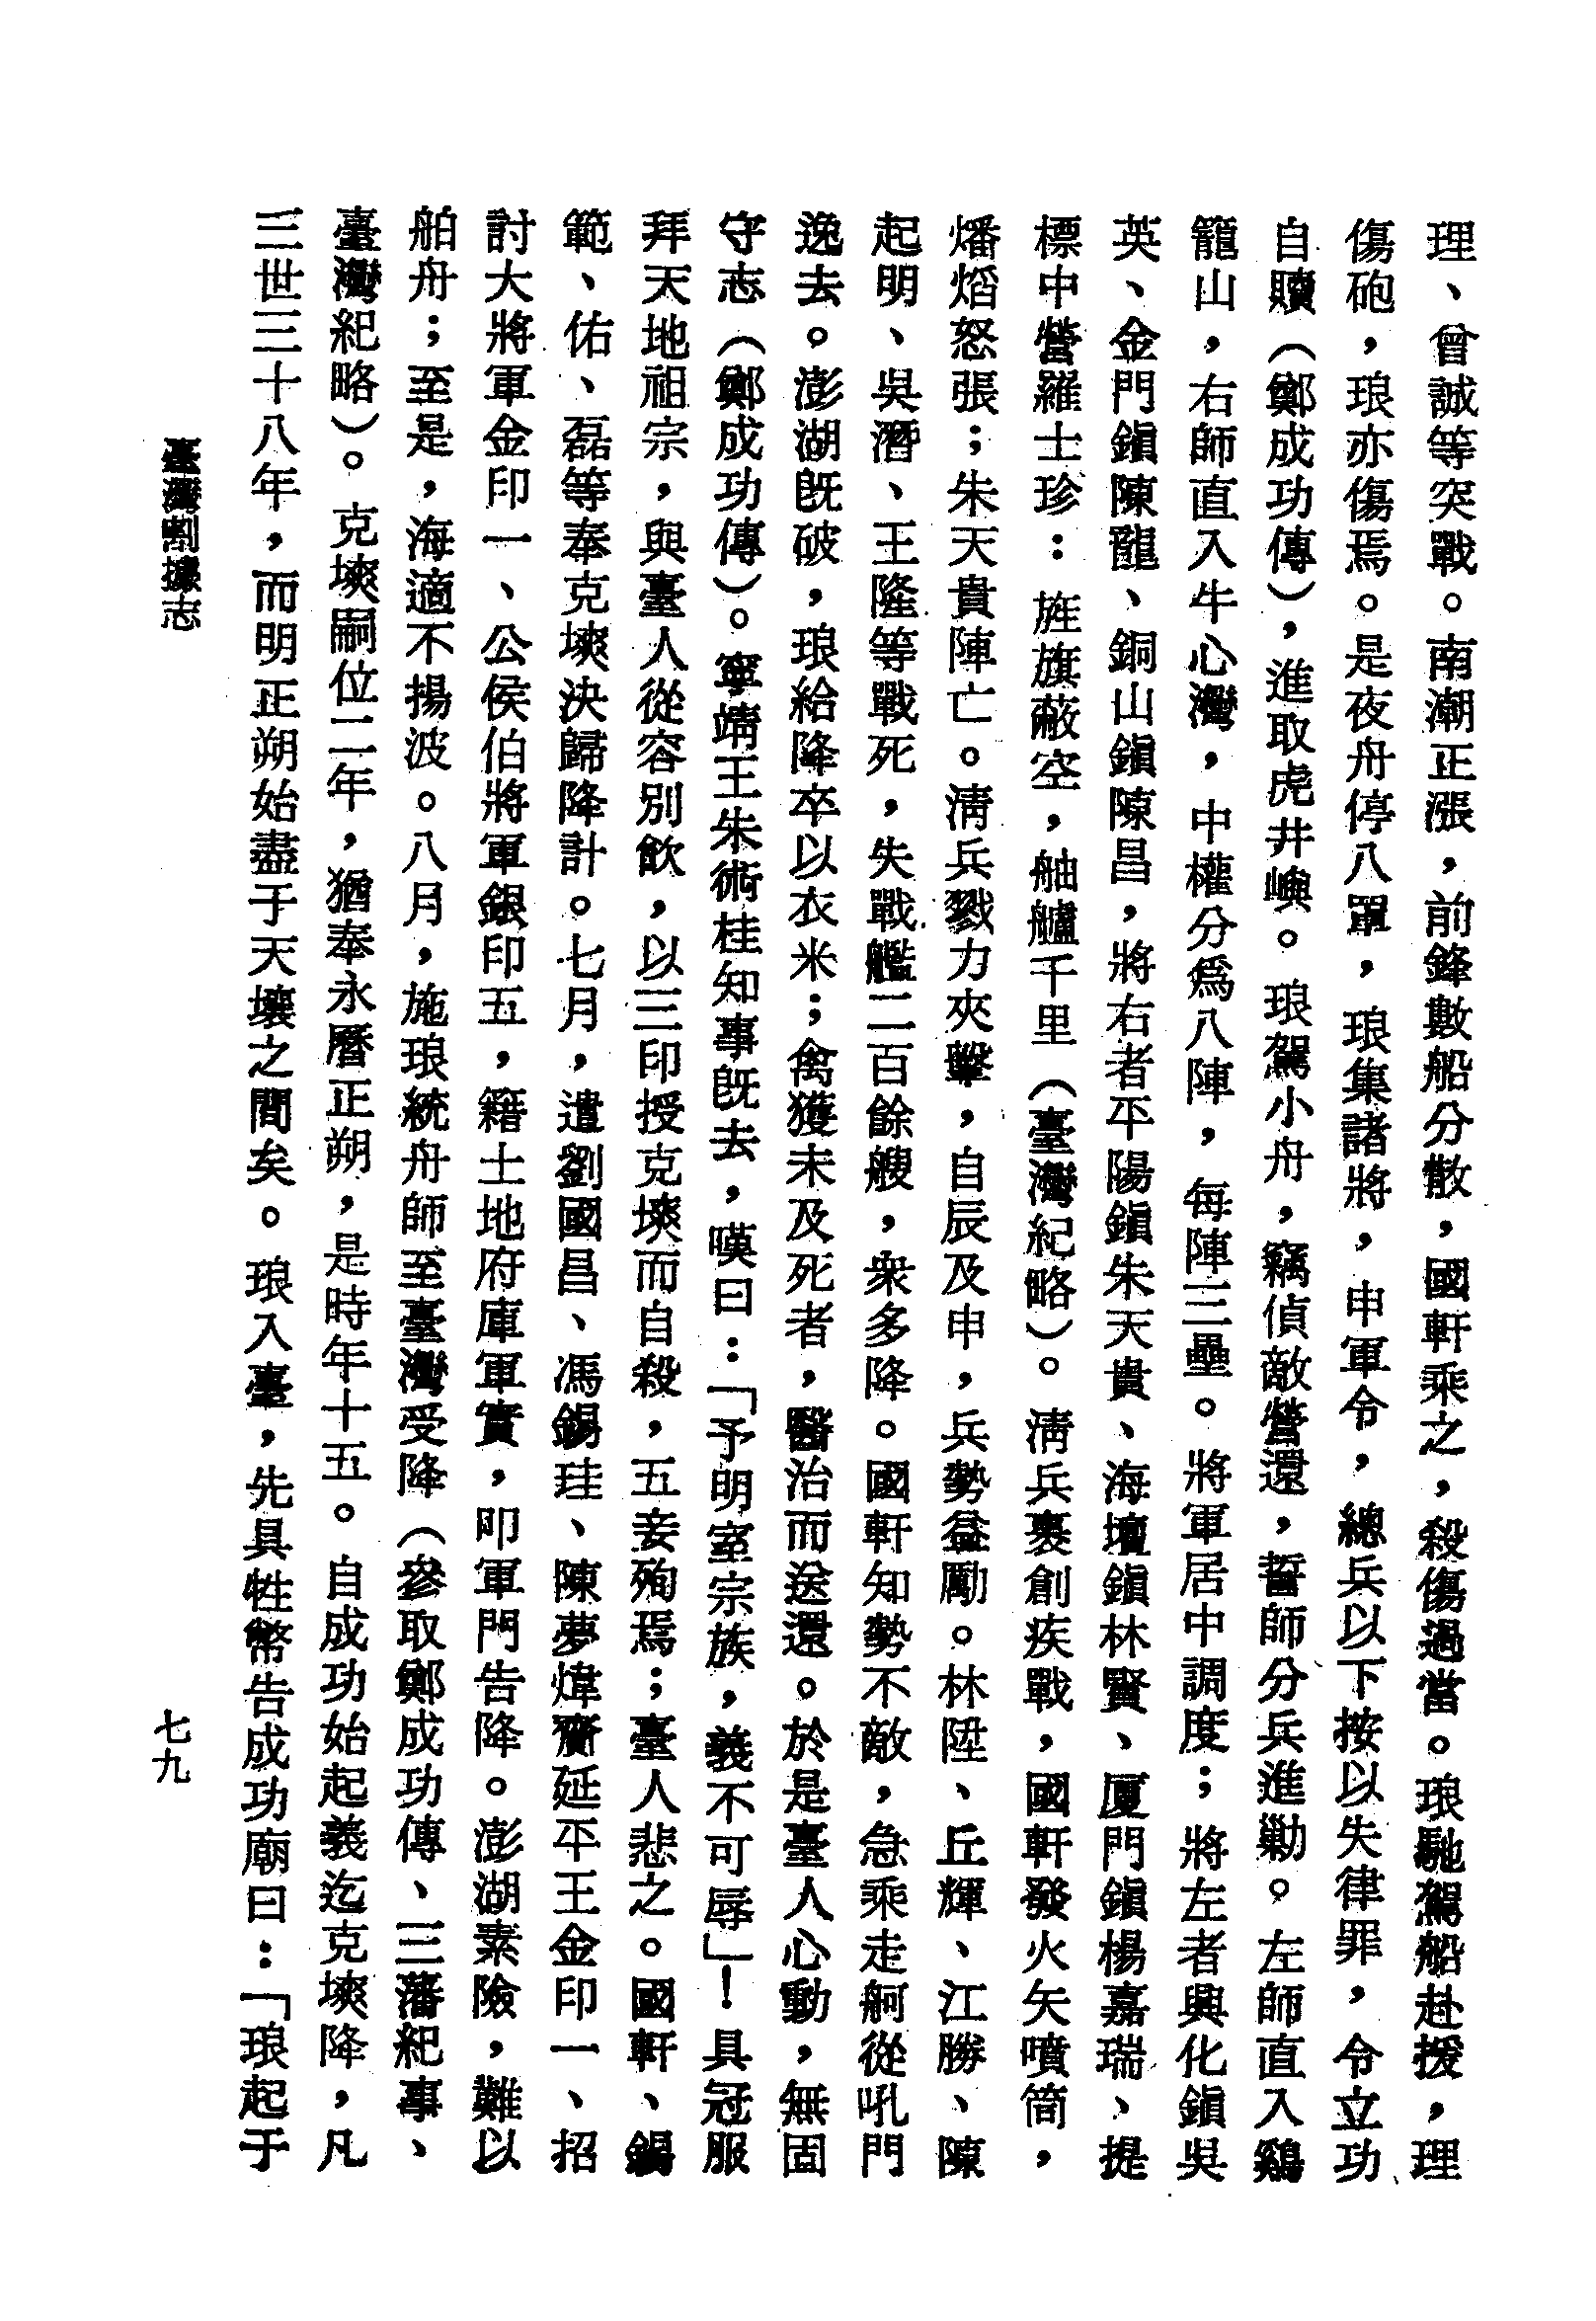 理、曾誠等突戰。南潮正漲，前鋒數船分散，國軒乘之，殺傷過當。琅馳駕船赴援，理
傷砲，琅亦傷焉。是夜舟停八罩，琅集諸將，申軍令，總兵以下按以失律罪，令立功
自贖（鄭成功傳），進取虎井嶼。琅駕小舟，竊偵敵營還，誓師分兵進勦。左師直入鷄
籠山，右師直入牛心灣，中權分爲八陣，每陣三壘。將軍居中調度；將左者興化鎭吳
英、金門鎭陳龍、銅山鎭陳昌，將右者平陽鎭朱天貴、海壇鎭林賢、厦門鎭楊嘉瑞、提
標中營羅士珍：旌旗蔽空，舳艫千里（臺灣紀略）。淸兵裹創疾戰，國軒發火矢噴筒，
燔熖怒張；朱天貴陣亡。淸兵戮力夾擊，自辰及申，兵勢益勵。林陞、丘輝、江勝、陳
起明、吳潛、王隆等戰死，失戰艦二百餘艘，衆多降。國軒知勢不敵，急乘走舸從吼門
逸去。澎湖旣破，琅給降卒以衣米；禽獲未及死者，醫治而送還。於是臺人心動，無固
守志（鄭成功傳）。寧靖王朱術桂知事旣去，嘆曰：「予明室宗族，義不可辱」！具冠服
拜天地祖宗，與臺人從容別飮，以三印授克塽而自殺，五妾殉焉；臺人悲之。國軒、錫
範、佑、磊等奉克塽決歸降計。七月，遣劉國昌、馮錫珪、陳夢煒齎延平王金印一、招
討大將軍金印一、公侯伯將軍銀印五，籍土地府庫軍實，叩軍門告降。澎湖素險，難以
舶舟；至是，海適不揚波。八月，施琅統舟師至臺灣受降（參取鄭成功傳、三藩紀事、
臺灣紀略）。克塽嗣位二年，猶奉永曆正朔，是時年十五。自成功始起義迄克塽降，凡
三世三十八年，而明正朔始盡于天壤之間矣。琅入臺，先具牲幣告成功廟曰：「琅起于
臺灣割據志
七九